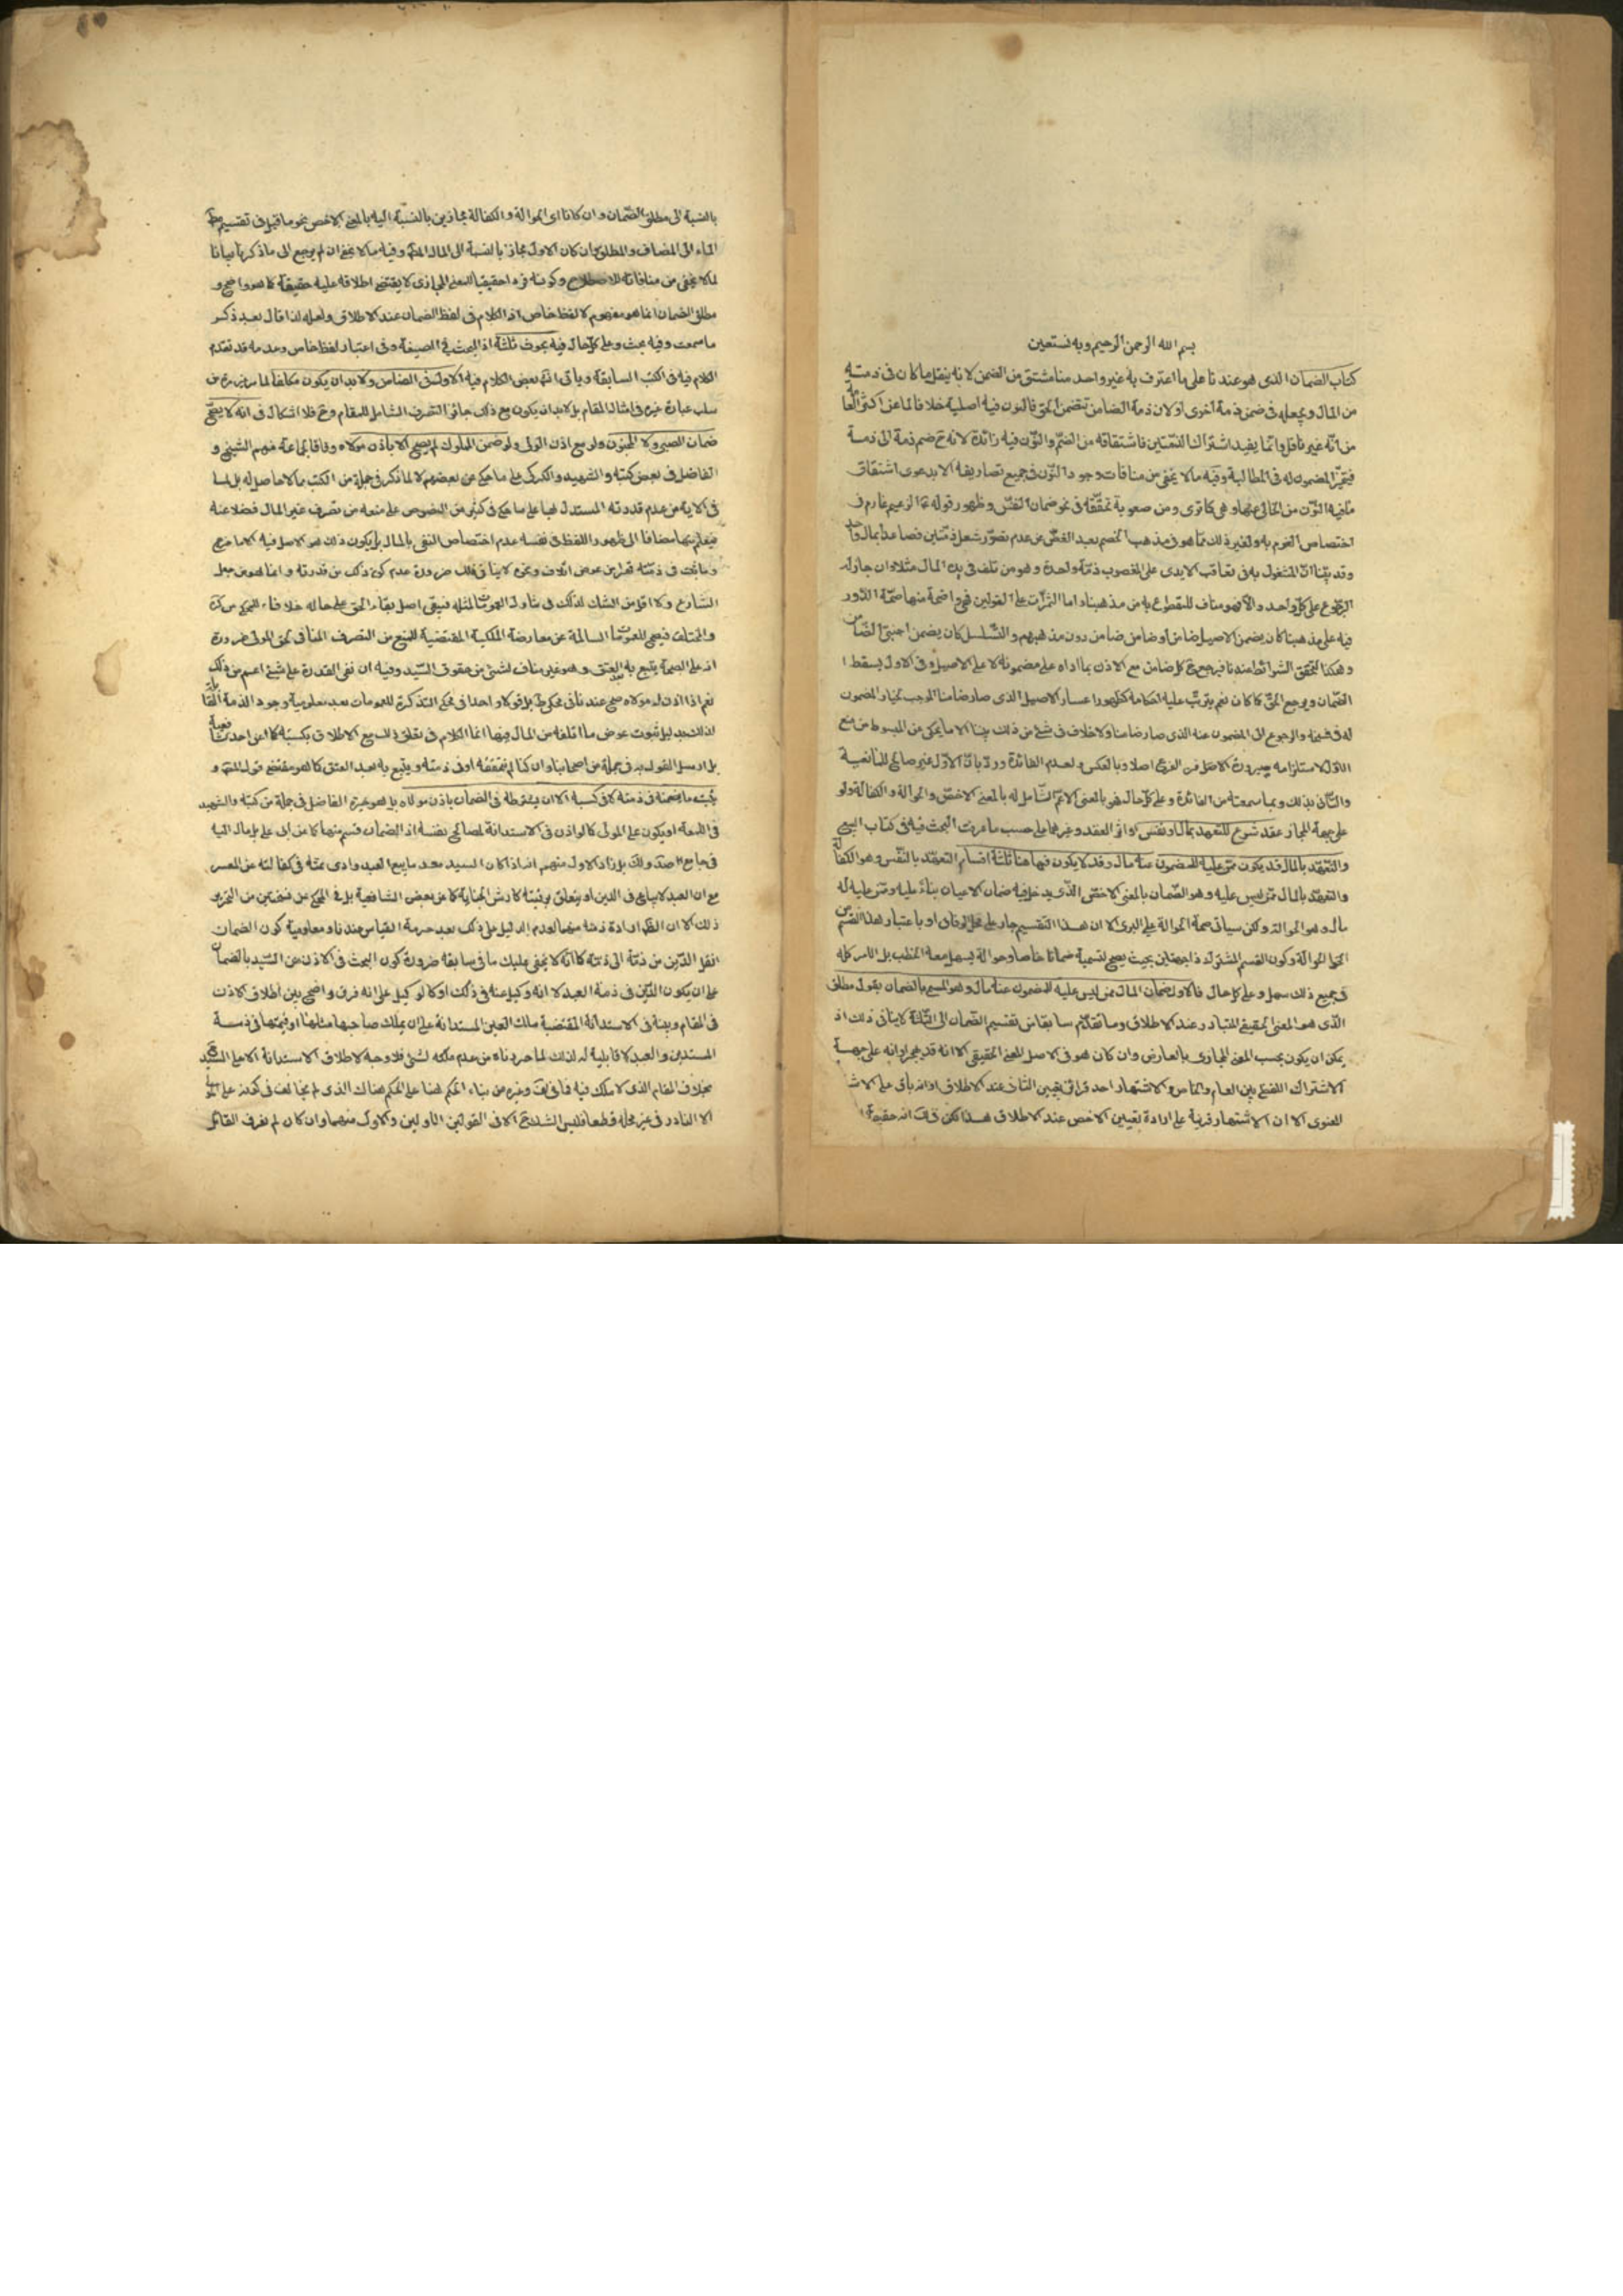 بسم الله الرحمن الرحيم وبه نستعين
كتاب الضمان الذى هو عندنا على ما اعترف به غير واحد منا مشتق من الضمن لانه ينقل ما كان فى ذمته
من المال ويجعله فى ضمن ذمة اخرى او لان ذمة الضامن تتضمن الحق فالنون فيه اصلية خلافا لما عن اكثر العا
من انه غير ناقل وانما يفيد اشتراك الذمتين فاشتقاقه من الضم والنون فيه زائدة لانه ح ضم ذمة الى ذمة
فيتخير المضمون له فى المطالبة وفيه ما لا يخفى من منافات وجود النون فى جميع تصاريفه الا بدعوى اشتقاق
ما فيه النون من الخالى عنها وهى كما ترى ومن صعوبة تحققه فى نحو ضمان النفس وظهور قوله ع الزعيم غارم فى
اختصاص الغرم به ولغير ذلك مما هو فى مذهب الخصم بعد الغض عن عدم تصور شغل ذمتين فصاعدا بمال واحد
وقد بينا ان المشغول به فى تعاقب الايدى على المغصوب ذمة واحدة وهو من تلف فى يده المال مثلا وان جاز له
الرجوع على كل واحد والا فهو مناف للمقطوع به من مذهبنا واما الثمرات على القولين فهى واضحة منها صحة الدور
فيه على مذهبنا كان يضمن الاصيل ضامن او ضامن ضامن دون مذهبهم والتسلسل كان يضمن اجنبى الضامن
وهكذا لتحقق الشرائط عندنا فيرجع ح كل ضامن مع الاذن بما اداه على مضمونه لا على الاصيل وفى الاول يسقط ا
الضمان ويرجع الحق كما كان نعم يترتب عليه احكامه كظهور اعسار الاصيل الذى صار ضامنا الموجب لخيار المضمون
له فى فسخه والرجوع الى المضمون عنه الذى صار ضامنا ولا خلاف فى شئ من ذلك بيننا الا ما يحكى عن المبسوط من منع
الاول لاستلزامه صيرورة الاصل فرع الفرع اصلا وبالعكس ولعدم الفائدة ورد بان الاول غير صالح للمانعية
والثانى بذلك وبما سمعته من الفائدة وعلى كل حال فهو بالمعنى الاعم الشامل له بالمعنى الاخص والحوالة والكفالة ولو
على جهة المجاز عقد شرع للتعهد بمال او نفس او اثر العقد وغيرهما على حسب ما عرفت البحث فيه فى كتاب البيع
والتعهد بالمال قد يكون ممن عليه للمضمون عنه مال وقد لا يكون فيها هنا ثلثة اقسام التعهد بالنفس وهو الكفالة
والتعهد بالمال ممن ليس عليه وهو الضمان بالمعنى الاخص الذى يدخل فيه ضمان الاعيان بناء عليه وممن عليه له
مال وهو الحوالة ولكن سياتى صحة الحوالة على البرى الا ان هذا التقسيم جار على محل الوفاق او باعتبار لهذا القسم من
الحوالة وكون القسم المشترك ذا جهتين بحيث يصح تسمية ضمانا خاصا وحوالة يسهل معه الخطب بل الامر كله
فى جميع ذلك سهل وعلى كل حال فالاول ضمان المال ممن ليس عليه للمضمون عنه مال وهو المسمى بالضمان بقول مطلق
الذى هو المعنى الحقيقى المتبادر عند الاطلاق وما تقدم سابقا من تقسيم الضمان الى الثلثة لا ينافى ذلك اذ
يمكن ان يكون بحسب المعنى المجازى بالعارض وان كان هو فى الاصل المعنى الحقيقى الا انه قد هجر او انه على جهة
الاشتراك اللفظى بين العام والخاص والاشتهار احد قرائن تعيين الثانى عند الاطلاق او انه باق على الاشتر
المعنوى الا ان الاشتهار قرينة على ارادة تعيين الاخص عند الاطلاق هذا لكن فى انه حقيقة
بالنسبة الى مطلق الضمان وان كانا اى الحوالة والكفالة مجازين بالنسبة اليه بالمعنى الاخص نحو ما قيل فى تقسيم مطلق
الماء الى المضاف والمطلق وان كان الاول مجازا بالنسبة الى الماء المطلق وفيه ما لا يخفى ان لم يرجع الى ما ذكرناه بيانا
لما لا يخفى من منافاته للاصطلاح وكونه فردا حقيقيا للمعنى المجازى لا يقتضى اطلاقه عليه حقيقة كما هو واضح و
مطلق الضمان انما هو مفهوم لا لفظ خاص اذ الكلام فى لفظ الضمان عند الاطلاق ولعله لذا قال بعد ذكر
ما سمعت وفيه بحث وعلى كل حال فيه بحوث ثلثة اذ البحث فى الصيغة وفى اعتبار لفظ خاص وعدمه قد تقدم
الكلام فيه فى الكتب السابقة وياتى انش بعض الكلام فيه الاول فى الضامن ولا بد ان يكون مكلفا لما عرفت من
سلب عبارة غيره فى امثال المقام بل لابد ان يكون مع ذلك جائز التصرف الشامل للمقام وح فلا اشكال فى انه لا يصح
ضمان الصبى ولا المجنون ولو مع اذن الولى ولو ضمن المملوك لم يصح الا باذن مولاه وفاقا لجماعة منهم الشيخ و
الفاضل فى بعض كتبه والشهيد والكركى على ما حكى عن بعضهم لا لما ذكر فى جملة من الكتب مما لا حاصل له بل لما
فى الاية من عدم قدرته المستدل بها على ما حكى فى كثير من النصوص على منعه من تصرف غير المال فضلا عنه
فيعلم منها مضافا الى ظهور اللفظ فى نفسه عدم اختصاص النفى بالمال بل يكون ذلك هو الاصل فيه الا ما خرج
وما يثبت فى ذمته قهرا من عوض اتلاف ونحوه لا ينافى ذلك ضرورة عدم كون ذلك من قدرته وانما هو من جعل
الشارع ولا اقل من الشك لذلك فى تناول العمومات لمثله فيبقى اصل بقاء الحق على حاله خلافا للمحكى عن كرة
والمختلف فيصح للعمومات السالمة عن معارضة الملكية المقتضية للمنع من التصرف المنافى لحق المولى ضرورة
انه على الصحة يتبع به بعد العتق وهو غير مناف لشئ من حقوق السيد وفيه ان نفى القدرة على شئ اعم من ذلك
نعم اذا اذن له مولاه صح عندنا فى محكى ط بل قولا واحدا فى محكى التذكرة للعمومات بعد معلومية وجود الذمة القابلة
لذلك بدليل ثبوت عوض ما اتلفه من المال فيها انما الكلام فى تعلق ذلك مع الاطلاق بكسبه كما عن احد
بل ارسل القول به فى جملة من اصحابنا وان كنا لم نتحققه او فى ذمته ويتبع به بعد العتق كما هو مقتضى قول المصنف و
يثبت ما ضمنه فى ذمته لا فى كسبه الا ان يشترطه فى الضمان باذن مولاه بل هو خيرة الفاضل فى جملة من كتبه والشهيد
فى اللمعة او يكون على المولى كما لو اذن فى الاستدانة لمصالح نفسه اذ الضمان قسم منها كما عن ابى على بل مال اليه
فى جامع المقاصد ولك بل زاد الاول منهم انه اذا كان السيد معسرا بيع العبد وادى ثمنه فى كفالته عن المعسر
مع ان العبد لا يباع فى الدين او يتعلق برقبته كارش الجناية كما عن بعض الشافعية بل فى المحكى عن
ذلك الا ان الظاهر ارادة ذمته منهما لعدم الدليل على ذلك بعد حرمة القياس عندنا ومعلومية كون الضمان
انتقل الدين من ذمة الى ذمة كما انه لا يخفى عليك ما فى سابقه ضرورة كون البحث فى الاذن من السيد بالضمان
على ان يكون الدين فى ذمة العبد لا انه وكيل عنه فى ذلك او كالوكيل على انه فرق واضح بين اطلاق الاذن
فى المقام وبينه فى الاستدانة المقتضية ملك العين المستدانة على ان يملك صاحبها مثلها او قيمتها فى ذمة
المستدين والعبد لا قابلية له لذلك لما حررناه من عدم ملكه لشئ فلا وجه لاطلاق الاستدانة الا على السيد
بخلاف المقام الذى لا ملك فيه فما فى لف وغيره من بناء الحكم هنا على الحكم هناك الذى لم يخالف فى كونه على المولى
الا النادر فى غير محله قطعا فليس الشك ح الا فى القولين الاولين والاول منهما وان كان لم نعرف القائل